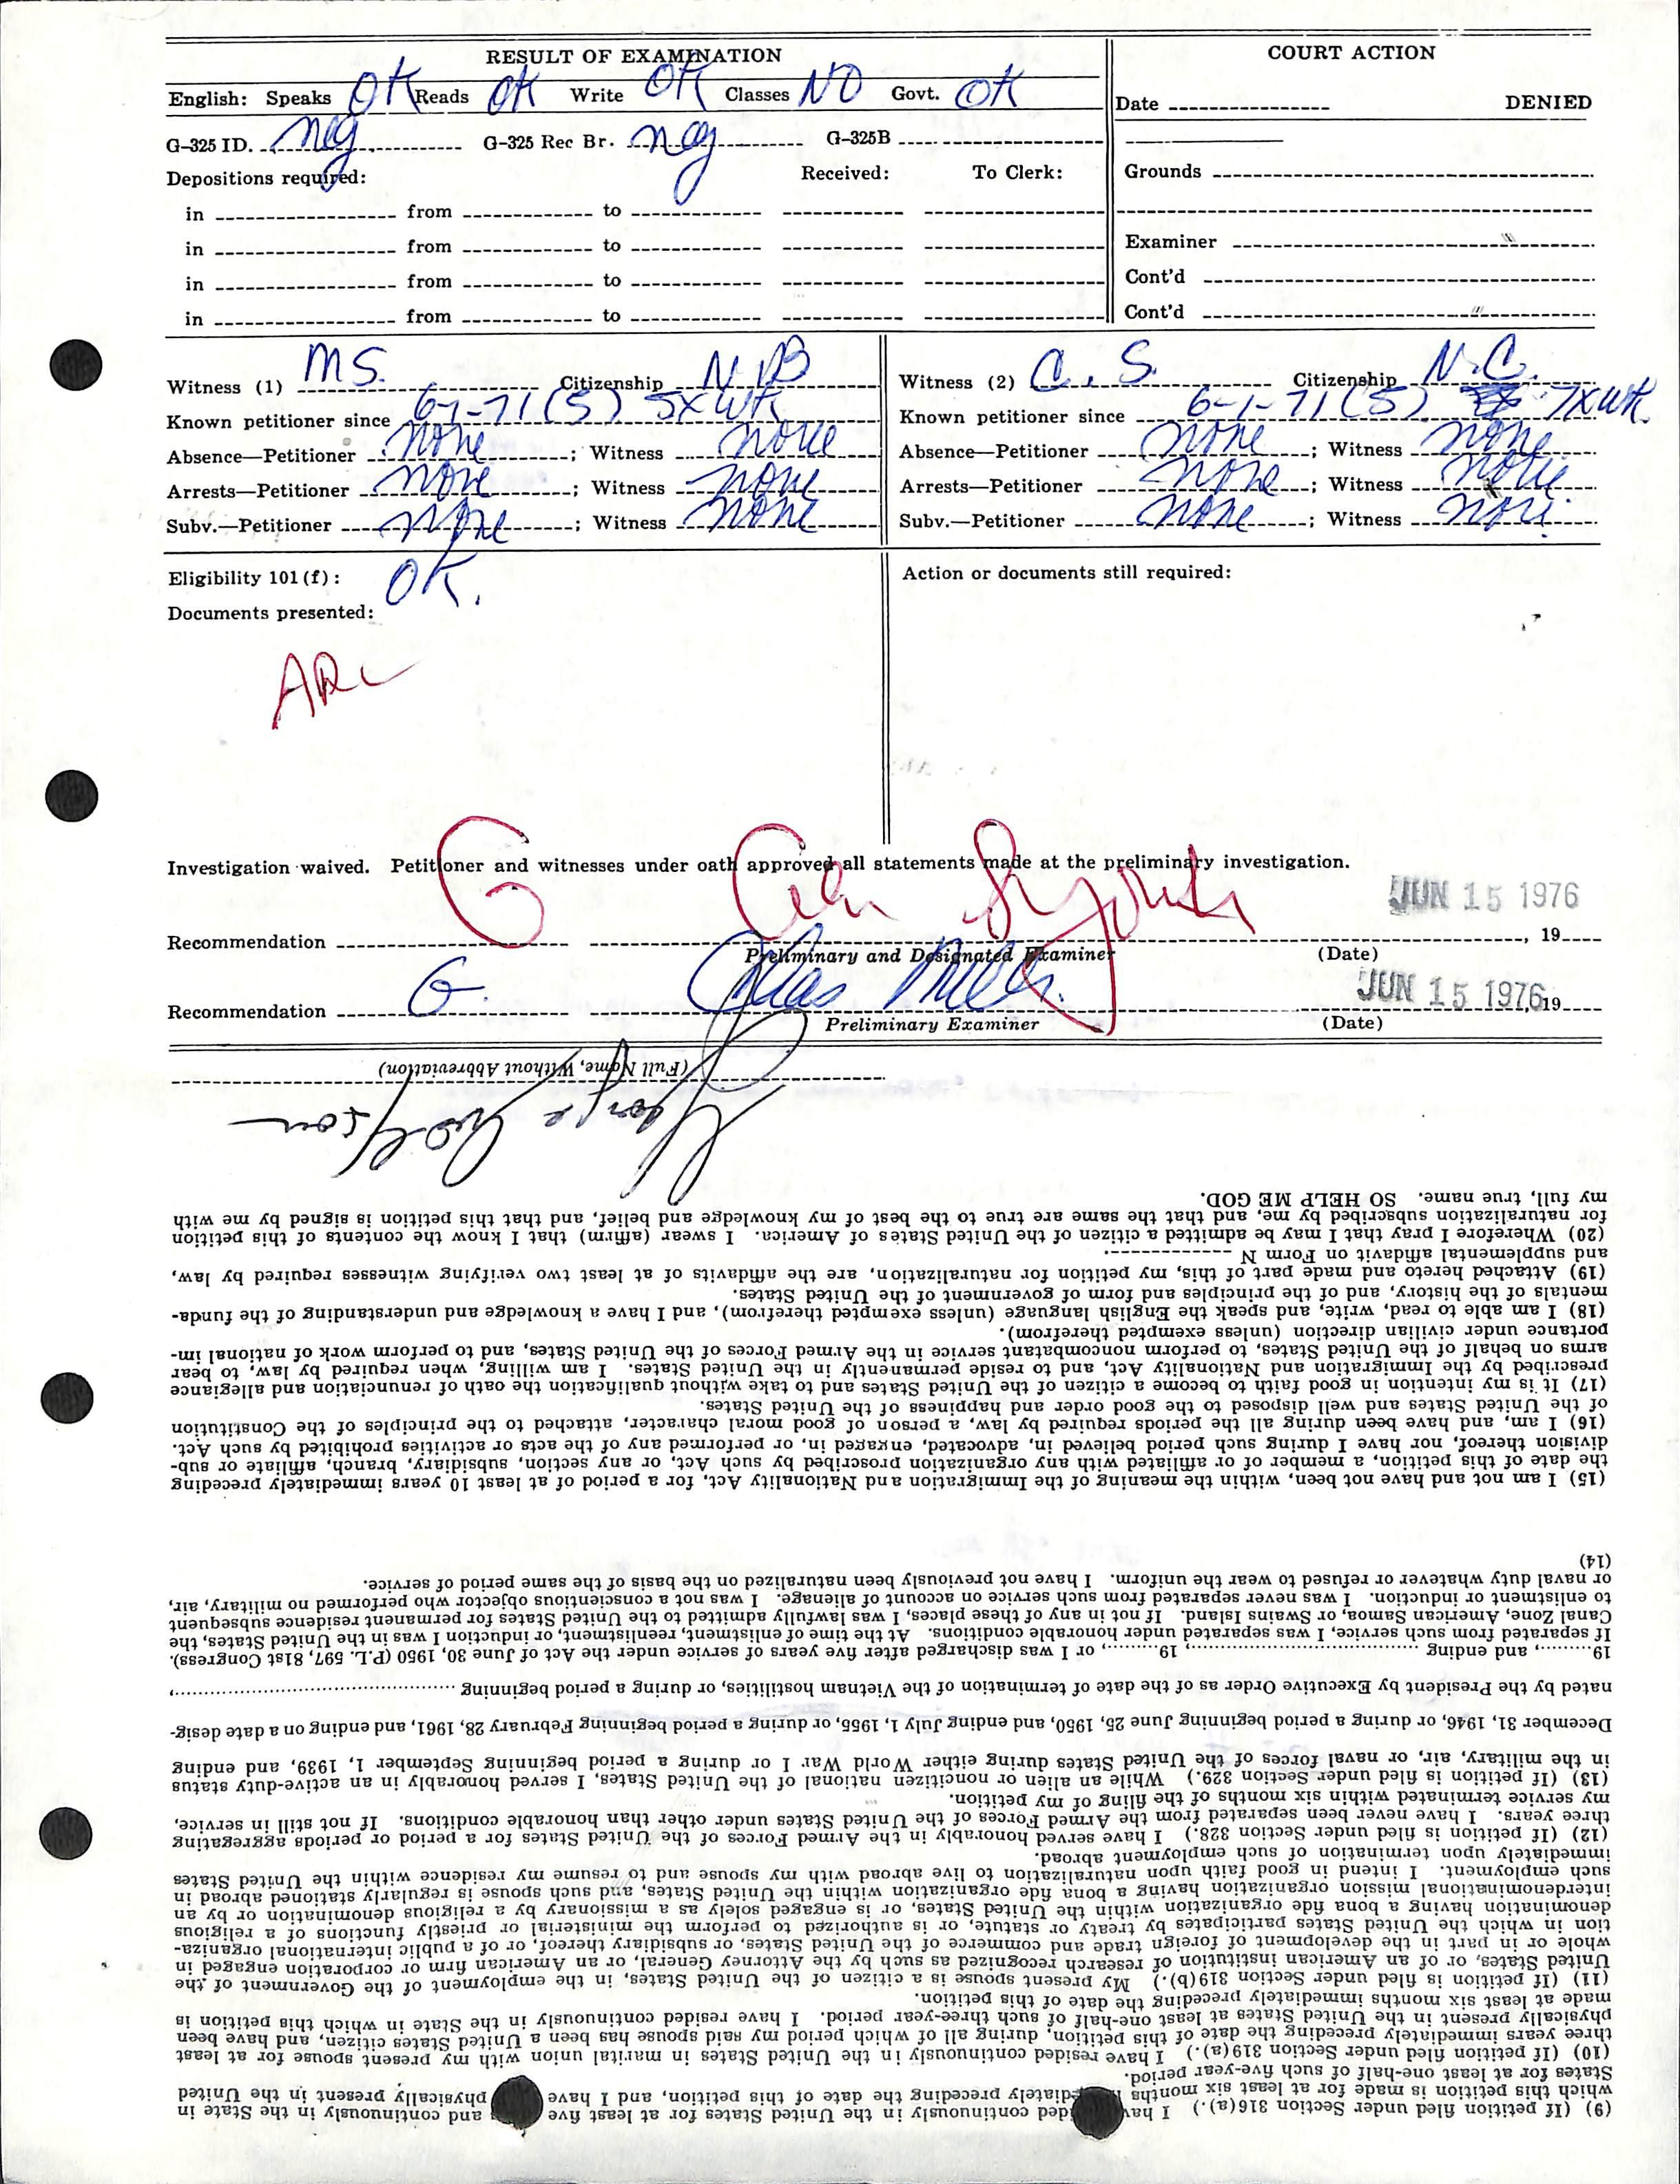 RESULT OF EXAMINATION
English: Speaks OK Reads OK Write OK Classes NO Govt. OK
G-325 ID. neg. G-325 Rec Br. neg G-325B
Depositions required: Received: To Clerk:
in from to
in from to
in from to
in from to
COURT ACTION
Date DENIED
Grounds
Examiner
Cont'd
Cont'd
Witness (1) MS. Citizenship N.B
Known petitioner since 6-1-71(S) 5XWK
Absence—Petitioner none; Witness none
Arrests—Petitioner none; Witness none
Subv.—Petitioner none; Witness none
Witness (2) C. S. Citizenship N.C.
Known petitioner since 6-1-71(S) 7XWK.
Absence—Petitioner none; Witness none
Arrests—Petitioner none; Witness none
Subv.—Petitioner none; Witness none
Eligibility 101(f): OK.
Documents presented:
ARC
Action or documents still required:
Investigation waived. Petitioner and witnesses under oath approved all statements made at the preliminary investigation.
JUN 15 1976
Recommendation G , 19
Preliminary and Designated Examiner (Date)
Recommendation G. JUN 15 1976, 19
Preliminary Examiner (Date)
(9) (If petition filed under Section 316(a).) I have resided continuously in the United States for at least five and continuously in the State in
which this petition is made for at least six months immediately preceding the date of this petition, and I have physically present in the United
States for at least one-half of such five-year period.
(10) (If petition filed under Section 319(a).) I have resided continuously in the United States in marital union with my present spouse for at least
three years immediately preceding the date of this petition, during all of which period my said spouse has been a United States citizen, and have been
physically present in the United States at least one-half of such three-year period. I have resided continuously in the State in which this petition is
made at least six months immediately preceding the date of this petition.
(11) (If petition is filed under Section 319(b).) My present spouse is a citizen of the United States, in the employment of the Government of the
United States, or of an American institution of research recognized as such by the Attorney General, or an American firm or corporation engaged in
whole or in part in the development of foreign trade and commerce of the United States, or subsidiary thereof, or of a public international organiza-
tion in which the United States participates by treaty or statute, or is authorized to perform the ministerial or priestly functions of a religious
denomination having a bona fide organization within the United States, or is engaged solely as a missionary by a religious denomination or by an
interdenominational mission organization having a bona fide organization within the United States, and such spouse is regularly stationed abroad in
such employment. I intend in good faith upon naturalization to live abroad with my spouse and to resume my residence within the United States
immediately upon termination of such employment abroad.
(12) (If petition is filed under Section 328.) I have served honorably in the Armed Forces of the United States for a period or periods aggregating
three years. I have never been separated from the Armed Forces of the United States under other than honorable conditions. If not still in service,
my service terminated within six months of the filing of my petition.
(13) (If petition is filed under Section 329.) While an alien or noncitizen national of the United States, I served honorably in an active-duty status
in the military, air, or naval forces of the United States during either World War I or during a period beginning September 1, 1939, and ending
December 31, 1946, or during a period beginning June 25, 1950, and ending July 1, 1955, or during a period beginning February 28, 1961, and ending on a date desig-
nated by the President by Executive Order as of the date of termination of the Vietnam hostilities, or during a period beginning ,
19 , and ending , 19 , or I was discharged after five years of service under the Act of June 30, 1950 (P.L. 597, 81st Congress).
If separated from such service, I was separated under honorable conditions. At the time of enlistment, reenlistment, or induction I was in the United States, the
Canal Zone, American Samoa, or Swains Island. If not in any of these places, I was lawfully admitted to the United States for permanent residence subsequent
to enlistment or induction. I was never separated from such service on account of alienage. I was not a conscientious objector who performed no military, air,
or naval duty whatever or refused to wear the uniform. I have not previously been naturalized on the basis of the same period of service.
(14)
(15) I am not and have not been, within the meaning of the Immigration and Nationality Act, for a period of at least 10 years immediately preceding
the date of this petition, a member of or affiliated with any organization proscribed by such Act, or any section, subsidiary, branch, affiliate or sub-
division thereof, nor have I during such period believed in, advocated, engaged in, or performed any of the acts or activities prohibited by such Act.
(16) I am, and have been during all the periods required by law, a person of good moral character, attached to the principles of the Constitution
of the United States and well disposed to the good order and happiness of the United States.
(17) It is my intention in good faith to become a citizen of the United States and to take without qualification the oath of renunciation and allegiance
prescribed by the Immigration and Nationality Act, and to reside permanently in the United States. I am willing, when required by law, to bear
arms on behalf of the United States, to perform noncombatant service in the Armed Forces of the United States, and to perform work of national im-
portance under civilian direction (unless exempted therefrom).
(18) I am able to read, write, and speak the English language (unless exempted therefrom), and I have a knowledge and understanding of the funda-
mentals of the history, and of the principles and form of government of the United States.
(19) Attached hereto and made part of this, my petition for naturalization, are the affidavits of at least two verifying witnesses required by law,
and supplemental affidavit on Form N .
(20) Wherefore I pray that I may be admitted a citizen of the United States of America. I swear (affirm) that I know the contents of this petition
for naturalization subscribed by me, and that the same are true to the best of my knowledge and belief, and that this petition is signed by me with
my full, true name. SO HELP ME GOD.
George
(Full Name, Without Abbreviation)